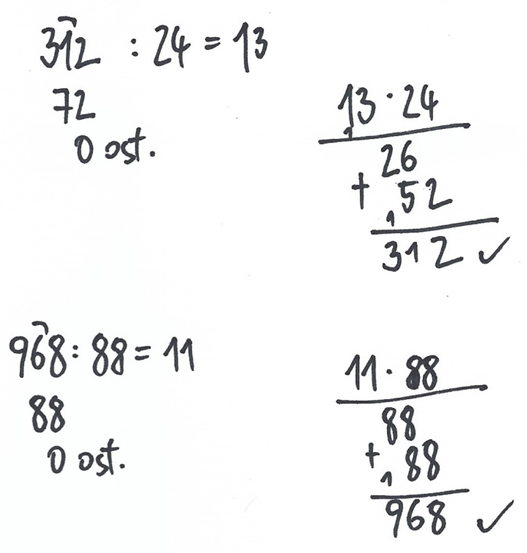 312 : 24 = 13
72
0 ost.
13 · 24
26
+ 52
312 ✓
968 : 88 = 11
88
0 ost.
11 · 88
88
+ 88
968 ✓